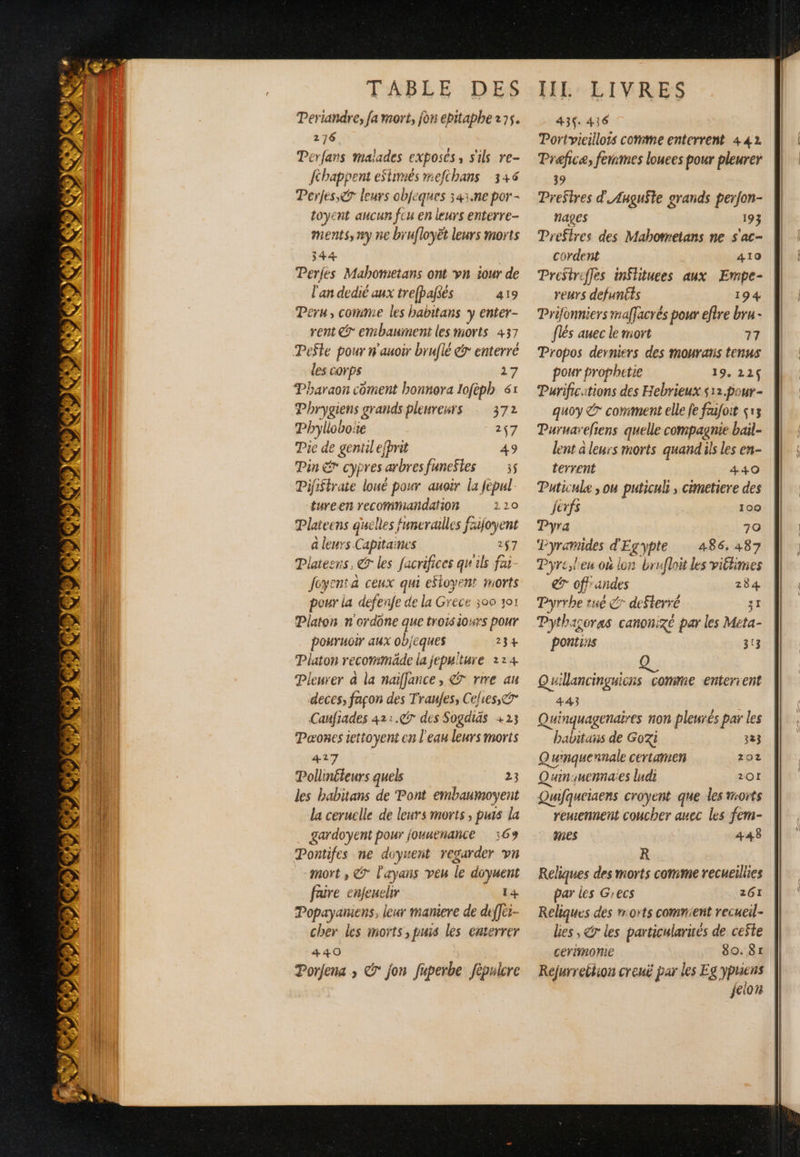 TABLE DES
Periandre, sa mort, son epitaphe 275.
276
Persans malades exposés, s'ils re-
schappent estimés meschans 346
Perses,& leurs obseques 343.ne por-
toyent aucun feu en leurs enterre-
ments, ny ne brusloyẽt leurs morts
344
Perses Mahometans ont vn iour de
l'an dedié aux trespassés 419
Peru, comme les habitans y enter-
rent & embaument les morts 437
Peste pour n'auoir bruslé & enterré
les corps 27
Pharaon cõment honnora Ioseph 61
Phrygiens grands pleureurs 372
Phyllobolie 257
Pie de gentil esprit 49
Pin & cypres arbres funestes 35
Pisistrate loué pour auoir la sepul-
ture en recommandation 220
Plateens quelles funerailles faisoyent
à leurs Capitaines 257
Plateens, & les sacrifices qu'ils fai-
soyent à ceux qui estoyent morts
pour la defense de la Grece 300 301
Platon n'ordõne que trois iours pour
pouruoir aux obseques 234
Platon recommãde la sepulture 224
Pleurer à la naissance, & rire au
deces, façon des Trauses, Cesies,&
Causiades 421.& des Sogdiãs 423
Pæones iettoyent en l'eau leurs morts
427
Pollincteurs quels 23
les habitans de Pont embaumoyent
la ceruelle de leurs morts, puis la
gardoyent pour souuenance 369
Pontifes ne doyuent regarder vn
mort, & l'ayans veu le doyuent
faire enseuelir 14
Popayaniens, leur maniere de dessei-
cher les morts, puis les enterrer
440
Porsena, & son superbe sepulcre
III. LIVRES
435. 436
Portvieillois comme enterrent 442
Præficæ, femmes louees pour pleurer
39
Prestres d'Auguste grands person-
nages 193
Prestres des Mahometans ne s'ac-
cordent 410
Prestresses instituees aux Empe-
reurs defuncts 194
Prisonniers massacrés pour estre bru-
slés auec le mort 77
Propos derniers des mourans tenus
pour prophetie 19. 225
Purifications des Hebrieux 512.pour-
quoy & comment elle se faisoit 513
Puruaresiens quelle compagnie bail-
lent à leurs morts quand ils les en-
terrent 440
Puticulæ, ou puticuli, cimetiere des
serfs 100
Pyra 70
Pyramides d'Egypte 486. 487
Pyre,lieu où lon brusloit les victimes
& offrandes 284
Pyrrhe tué & desterré 31
Pythagoras canonizé par les Meta-
pontins 313
Q
Quillancinguiens comme enterrent
443
Quinquagenaires non pleurés par les
habitans de Gozi 323
Quinquennale certamen 202
Quinquennales ludi 201
Quisqueiaens croyent que les morts
reuiennent coucher auec les fem-
mes 448
R
Reliques des morts comme recueillies
par les Grecs 261
Reliques des morts comment recueil-
lies, & les particularités de ceste
cerimonie 80. 81
Resurrection creuë par les Egyptiens
selon